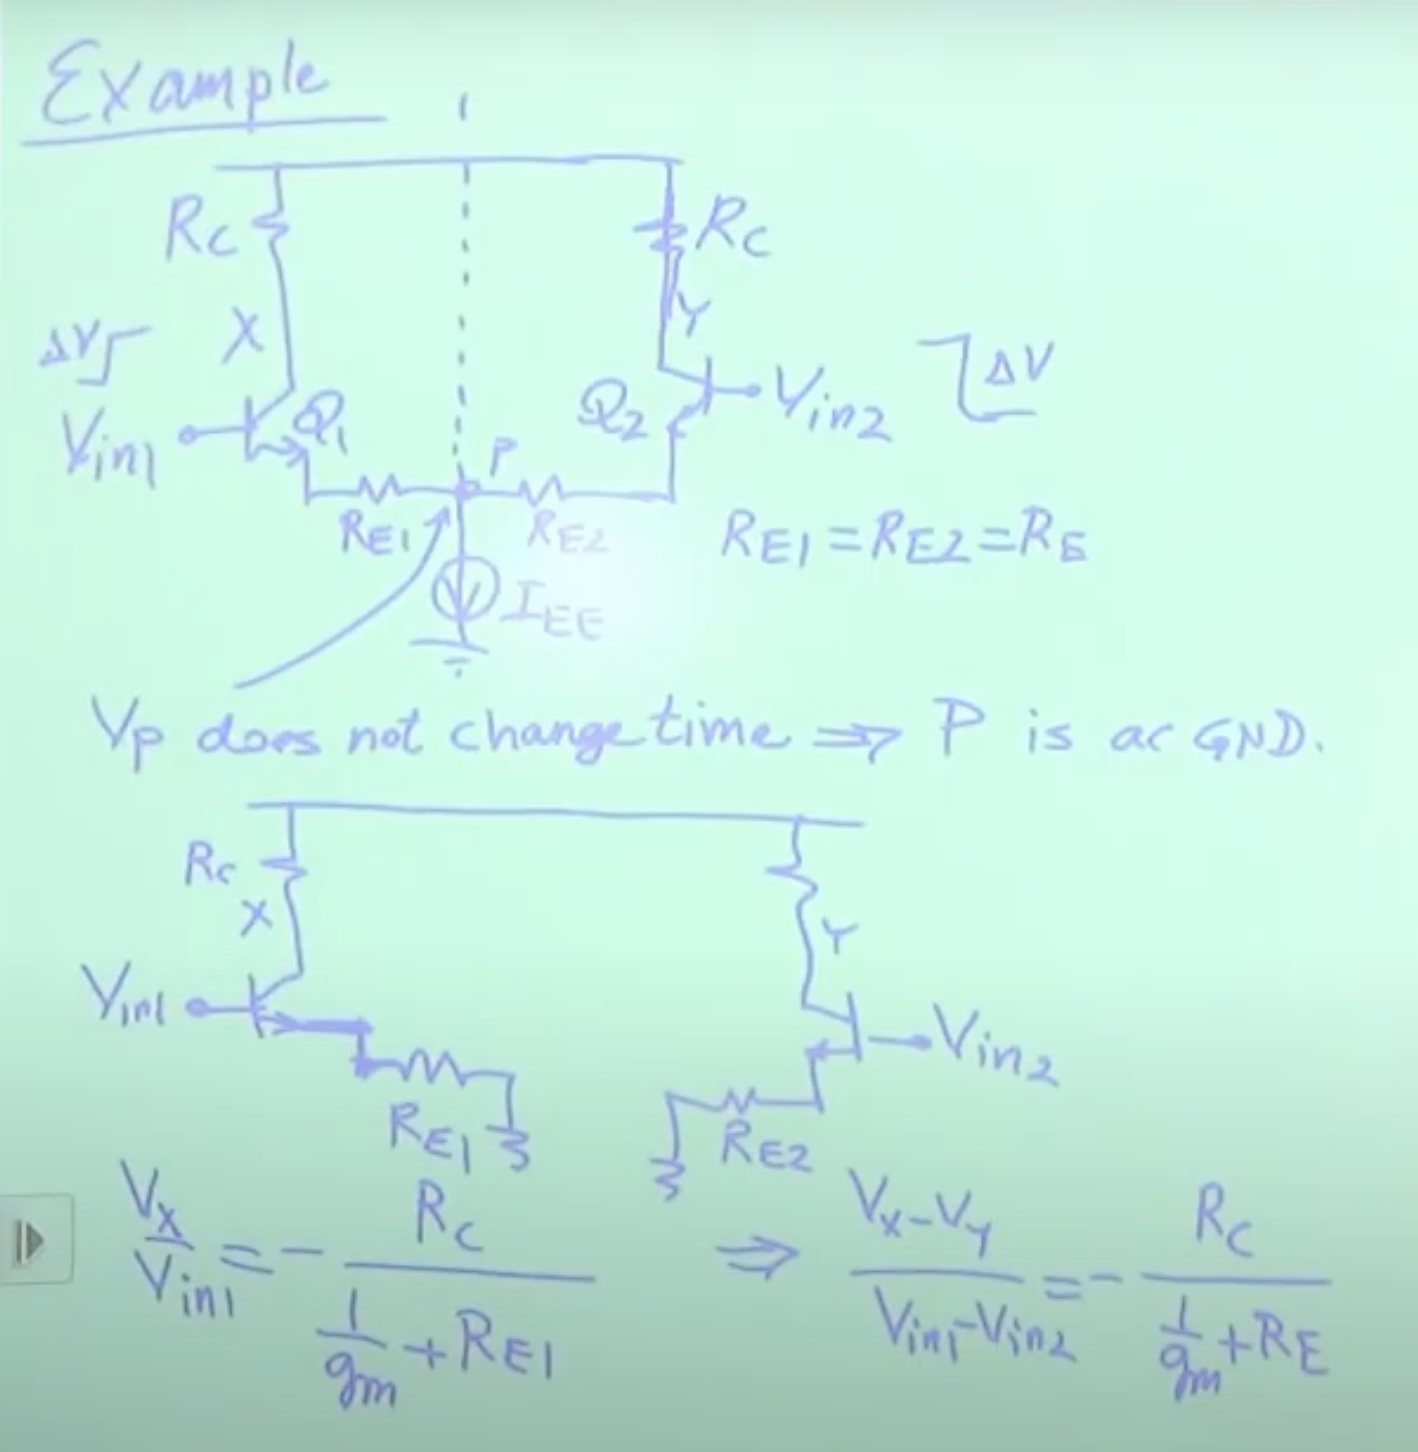 Example
Rc
Rc
X
Y
ΔV
ΔV
Vin1
Q1
Q2
Vin2
P
RE1
RE2
RE1 = RE2 = RE
IEE
Vp does not change time ⇒ P is ac GND.
Rc
X
Y
Vin1
Vin2
RE1
RE2
Vx/Vin1 = - Rc/(1/gm + RE1)
⇒ Vx-Vy/Vin1-Vin2 = - Rc/(1/gm + RE)